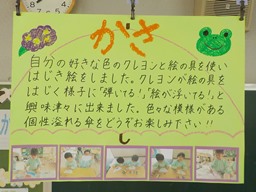 かさ
自分の好きな色のクレヨンと絵の具を使い
はじき絵をしました。クレヨンが絵の具を
はじく様子に「弾いてる！」「絵が浮いてる！」と
興味津々に出来ました。色々な模様がある
個性溢れる傘をどうぞお楽しみ下さい!!